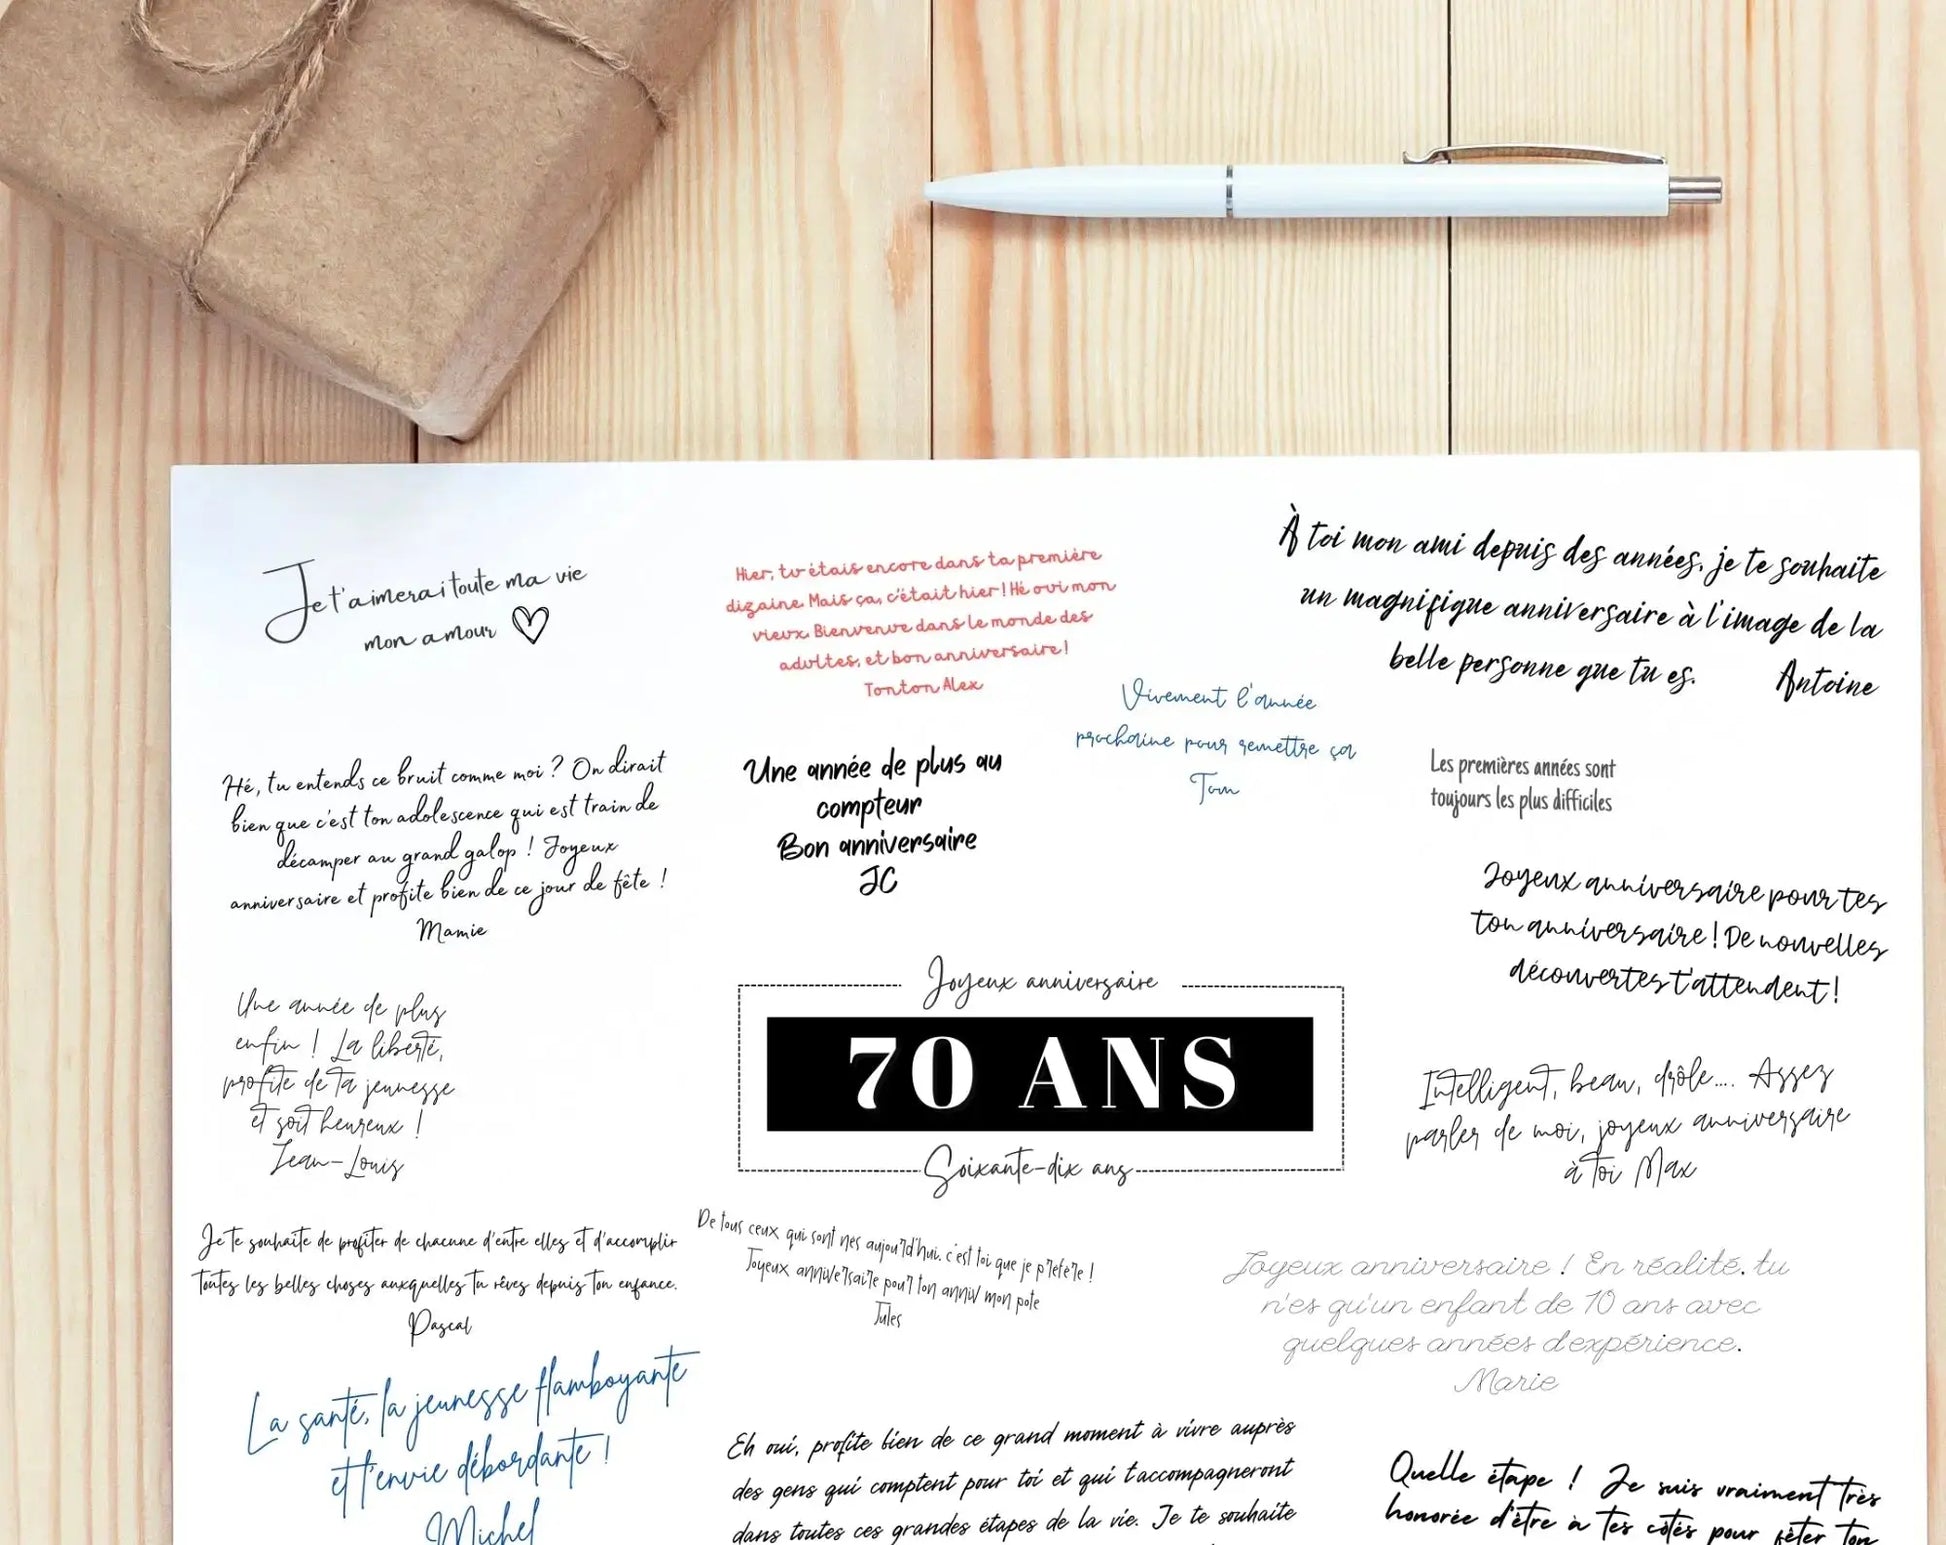 Je t'aimerai toute ma vie
mon amour
Hier, tu étais encore dans ta première
dizaine. Mais ça, c'était hier ! Hé oui mon
vieux. Bienvenue dans le monde des
adultes, et bon anniversaire !
Tonton Alex
À toi mon ami depuis des années, je te souhaite
un magnifique anniversaire à l'image de la
belle personne que tu es.
Antoine
Vivement l'année
prochaine pour remettre ça
Tom
Hé, tu entends ce bruit comme moi ? On dirait
bien que c'est ton adolescence qui est train de
décamper au grand galop ! Joyeux
anniversaire et profite bien de ce jour de fête !
Mamie
Une année de plus au
compteur
Bon anniversaire
JC
Les premières années sont
toujours les plus difficiles
Joyeux anniversaire pour tes
ton anniversaire ! De nouvelles
découvertes t'attendent !
Une année de plus
enfin ! La liberté,
profite de ta jeunesse
et soit heureux !
Jean-Louis
Joyeux anniversaire
70 ANS
Soixante-dix ans
Intelligent, beau, drôle.... Assez
parler de moi, joyeux anniversaire
à toi Max
Je te souhaite de profiter de chacune d'entre elles et d'accomplir
toutes les belles choses auxquelles tu rêves depuis ton enfance.
Pascal
De tous ceux qui sont nes aujourd'hui, c'est toi que je préfère !
Joyeux anniversaire pour ton anniv mon pote
Jules
Joyeux anniversaire ! En réalité, tu
n'es qu'un enfant de 10 ans avec
quelques années d'expérience.
Marie
La santé, la jeunesse flamboyante
et l'envie débordante !
Michel
Eh oui, profite bien de ce grand moment à vivre auprès
des gens qui comptent pour toi et qui t'accompagneront
dans toutes ces grandes étapes de la vie. Je te souhaite
Quelle étape ! Je suis vraiment très
honorée d'être à tes côtés pour fêter ton